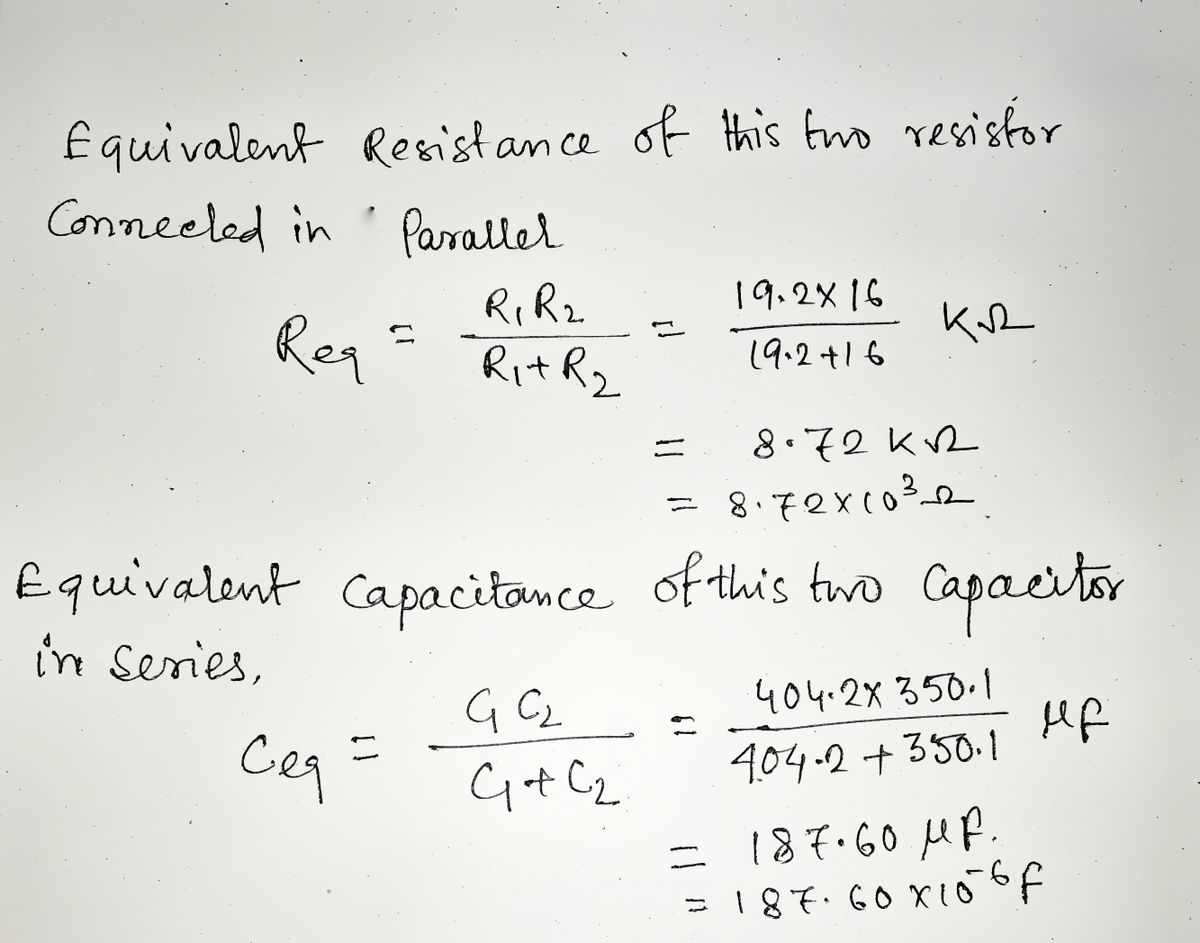 Equivalent Resistance of this two resistor
Connected in Parallel
Req = R1 R2 / R1 + R2 = 19.2 × 16 / 19.2 + 16 KΩ
= 8.72 KΩ
= 8.72 × 10³ Ω
Equivalent Capacitance of this two Capacitor
in Series,
Ceq = C1 C2 / C1 + C2 = 404.2 × 350.1 / 404.2 + 350.1 μF
= 187.60 μF.
= 187.60 × 10⁻⁶ F